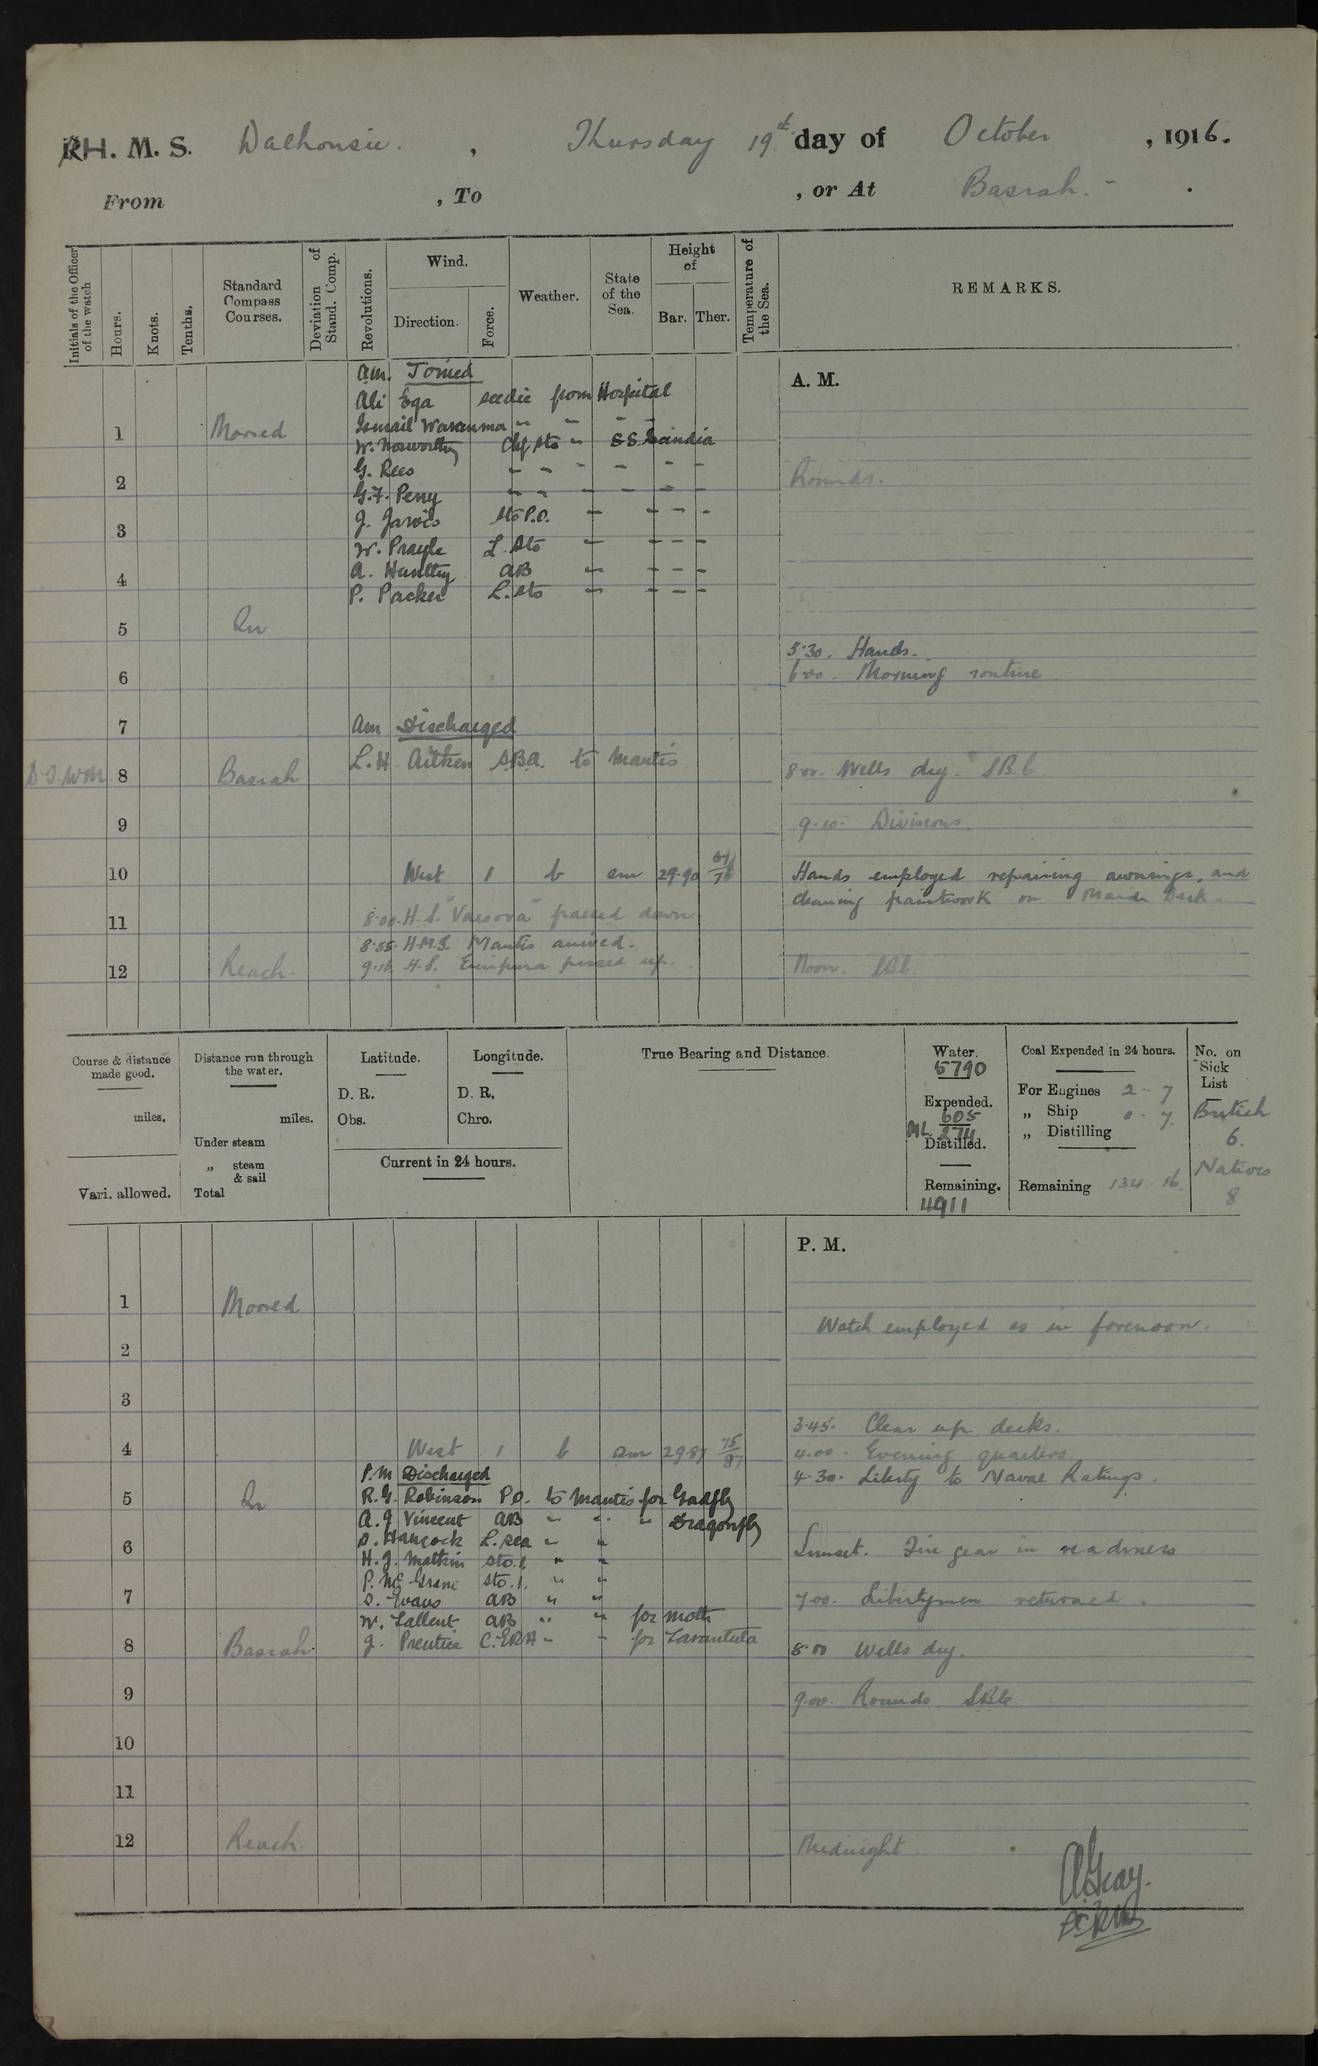 H. M. S. Dalhousie. , Thursday 19th day of October , 1916.
From , To , or At Basrah. -
Initials of the Officer of the watch
Hours.
Knots.
Tenths.
Standard Compass Courses.
Deviation of Stand. Comp.
Revolutions.
Wind.
Direction.
Force.
Weather.
State of the Sea.
Height of
Bar. Ther.
Temperature of the Sea.
REMARKS.
A. M.
am. Joined
Ali Ega seedie from Hospital
Ismail " - - -
1 Moored
W. Nosworthy Chf Sto " S.S.
G. Rees - - - - - - -
2 Rounds.
G.F. Perry - - - - - - -
J. Jarvis Sto P.O. - - - -
3
W. Prayle L. Sto - - - -
A. Huntley AB - - - -
4
P. Packer L. Sto - - - -
5 In
5.30. Hands.
6 6.00. Morning routine
7 am Discharged
L.H. Aitken S.B.A. to Mantis
D.S.WM 8 Basrah
8.00. Wells dry.
9 9.10. Divisions.
10 West 1 b sm 29.90
Hands employed repairing awnings, and
cleaning paintwork on Main Deck.
11 8.00. H.S. "Varsova" passed down
8.55. H.M.S. Mantis arrived.
9.10. H.S. Empura passed up.
12 Reach. Noon.
Course & distance made good.
miles.
Vari. allowed.
Distance run through the water.
miles.
Under steam
„ steam & sail
Total
Latitude.
D. R.
Obs.
Longitude.
D. R.
Chro.
Current in 24 hours.
True Bearing and Distance.
Water.
5790
Expended.
605
ML 274
Distilled.
Remaining.
4911
Coal Expended in 24 hours.
For Engines 2 - 7
„ Ship 0 - 7.
„ Distilling
Remaining 134 - 16.
No. on Sick List
British
6.
Natives
8
P. M.
1 Moored
Watch employed as in forenoon.
2
3
3.45. Clear up decks.
4 West 1 b sm 29.87 75/87
4.00. Evening quarters.
P.M Discharged
4.30. Liberty to Naval Ratings.
5 In
R.G. Robinson P.O. to Mantis for Gadfly
A.J Vincent AB " " " Dragonfly
S. Hancock L. Sea " "
6
Sunset. Fire gear in readiness
H.J. Matkin Sto.1 " "
P. McGrane Sto.1. " "
7 7.00. Libertymen returned.
S. Evans AB " "
W. Lallent AB " " for Moth
J. Prentice C.ERA " - for Tarantula
8 Basrah.
8.00 Wells dry.
9 9.00. Rounds
10
11
12 Reach. Midnight
A Gray.